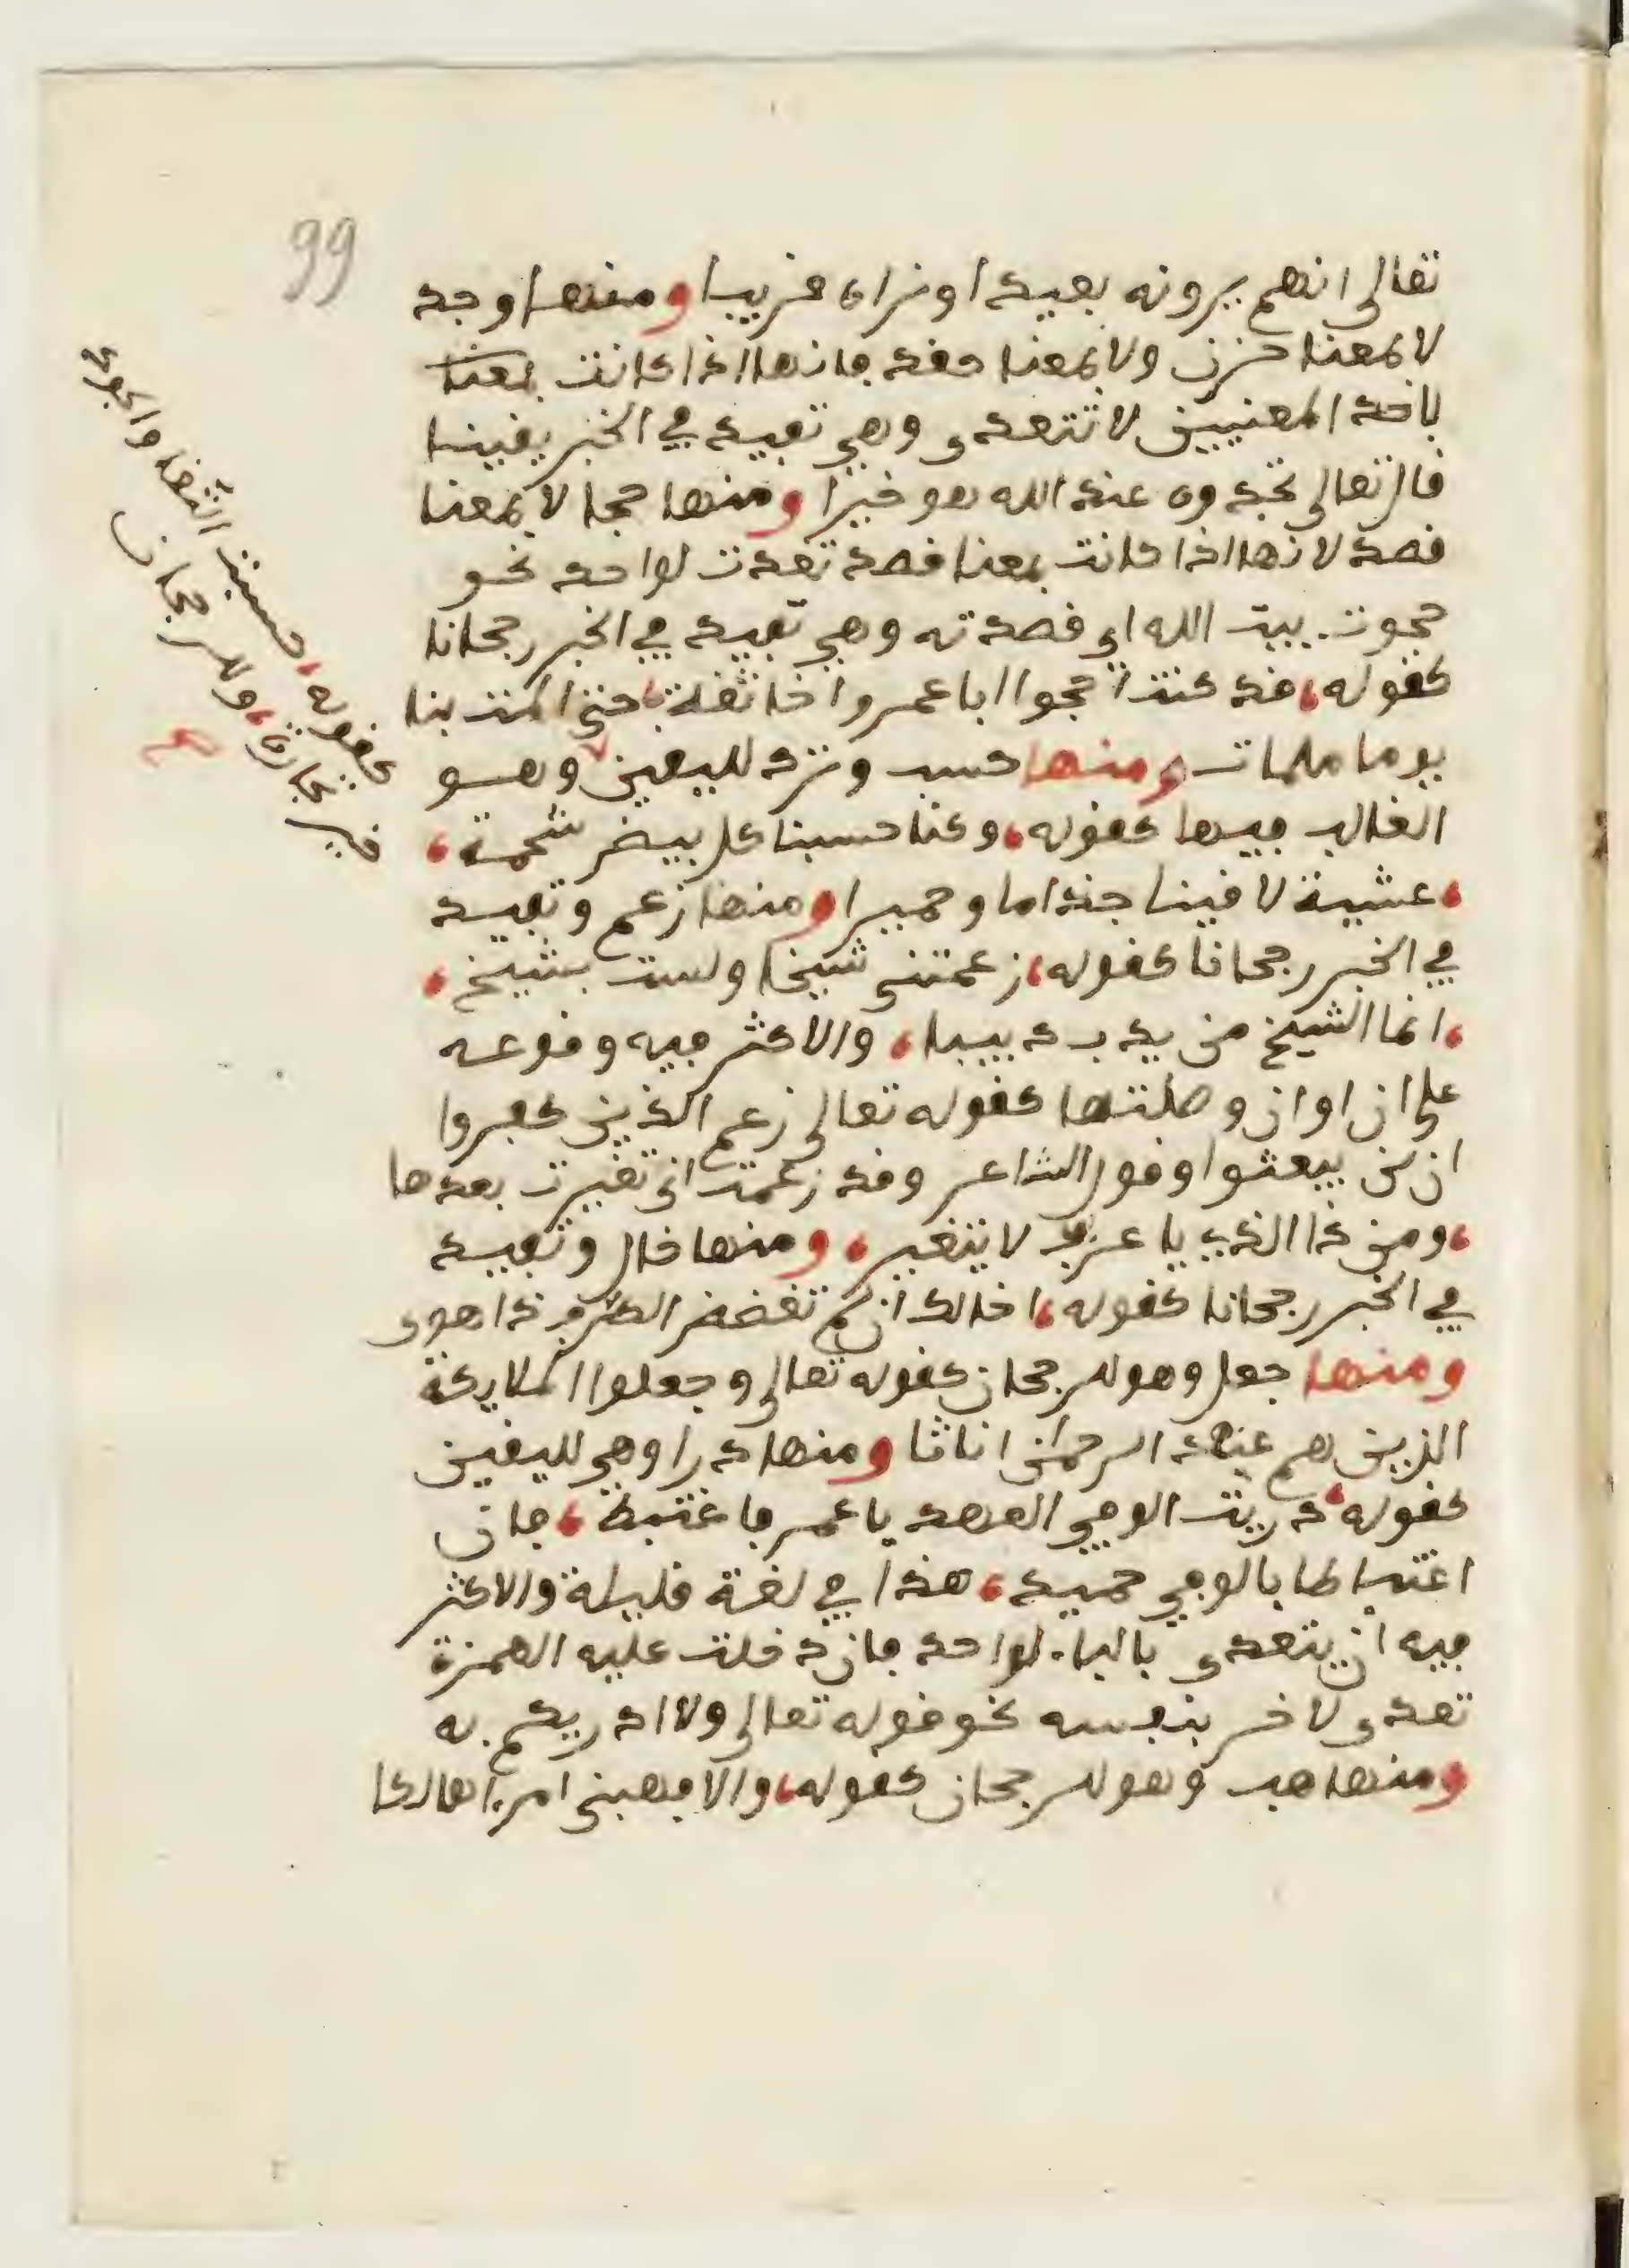 99
تعالى انهم يرونه بعيدا ونراه قريبا ومنها وجد
لا بمعنا حزن ولا بمعنا حقد فانها اذا كانت بمعنا
باحد المعنيين لا تتعدى وهي تفيد في الخبر يقينا
قال تعالى تجدوه عند الله هو خيرا ومنها حجا لا بمعنا
قصد لانها اذا كانت بمعنا قصد تعدت لواحد نحو
حجوت بيت الله اي قصدته وهي تفيد في الخبر رجحانا
كقوله، قد كنت احجوا ابا عمروا اخا ثقة، حتى المت بنا
يوما ملمات ومنها حسب وترد لليقين وهو
الغالب فيها كقوله، وكنا حسبنا كل بيضر شحمة،
، عشية لاقينا جذاما وحميرا ومنها زعم وتفيد
في الخبر رجحانا كقوله، زعمتني شيخا ولست بشيخ،
، انما الشيخ من يدب دبيبا، والاكثر فيه وقوعه
على ان او ان وصلتها كقوله تعالى زعم الذين كفروا
ان لن يبعثوا وقول الشاعر وقد زعمت اني تغيرت بعدها
، ومن ذا الذي يا عز لا يتغير، ومنها خال وتفيد
في الخبر رجحانا كقوله، اخالك ان لم تغضض الطرف ذا هوى
ومنها جعل وهو للرجحان كقوله تعالى وجعلوا الملايكة
الذين هم عند الرحمن اناثا ومنها درا وهي لليقين
كقوله، دريت الوفي العهد يا عمر فاغتبط، فان
اغتباطا بالوفي حميد، هذا في لغة قليلة والاكثر
فيه ان يتعدى بالباء لواحد فان دخلت عليه الهمزة
تعدى لاخر بنفسه نحو قوله تعالى ولا ادريكم به
ومنها هب وهو للرجحان كقوله، والا فهبني امرءا هالكا
كقوله، حسبت التقى والجود
خير تجارة، وللرجحان